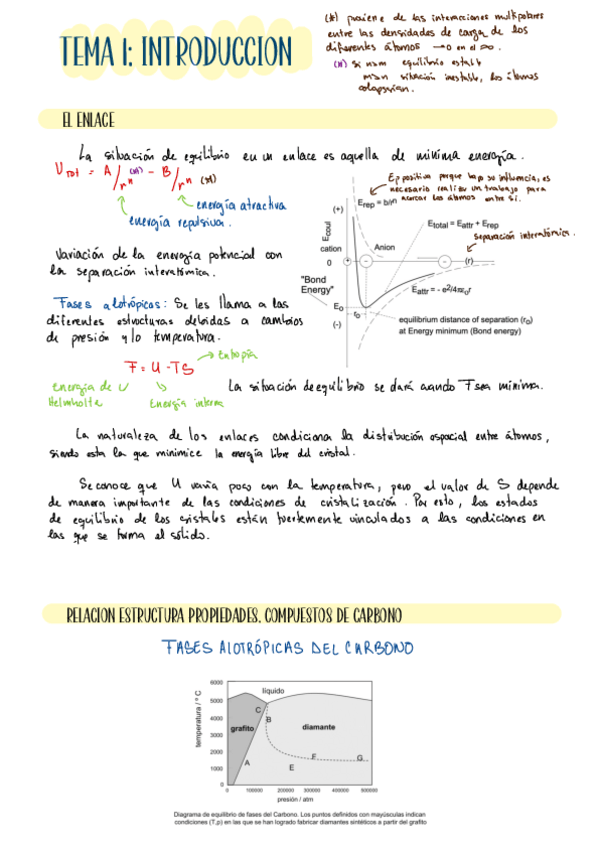 TEMA 1: INTRODUCCION
(*) proviene de las interacciones multipolares
entre las densidades de carga de los
diferentes átomos → 0 en el ∞.
(*) si n>m equilibrio estable
m>n situación inestable, los átomos
colapsarían.
EL ENLACE
La situación de equilibrio en un enlace es aquella de mínima energía.
U TOT = A/rⁿ (*) - B/rᵐ (*)
energía atractiva
energía repulsiva.
Variación de la energía potencial con
la separación interatómica.
Ep positiva porque bajo su influencia, es
necesario realizar un trabajo para
acercar los átomos entre sí.
(+)
E rep = b/rn
E total = E attr + E rep
separación interatómica.
E coul
cation
Anion
0
+
-
-
(r)
"Bond
Energy"
E attr = - e2/4πε0r
E0
r0
(-)
equilibrium distance of separation (r0)
at Energy minimum (Bond energy)
Fases alotrópicas: Se les llama a las
diferentes estructuras debidas a cambios
de presión y/o temperatura.
F = U - TS
→ Entropía
Energía de
Helmholtz
Energía interna
La situación de equilibrio se dará cuando F sea mínima.
La naturaleza de los enlaces condiciona la distribución espacial entre átomos,
siendo esta la que minimice la energía libre del cristal.
Se conoce que U varía poco con la temperatura, pero el valor de S depende
de manera importante de las condiciones de cristalización. Por esto, los estados
de equilibrio de los cristales están fuertemente vinculados a las condiciones en
las que se forma el sólido.
RELACION ESTRUCTURA PROPIEDADES. COMPUESTOS DE CARBONO
FASES AlOTRÓPICAS DEL CARBONO
temperatura / º C
6000
5000
4000
3000
2000
1000
0
líquido
grafito
diamante
C
B
A
E
F
G
0 100000 200000 300000 400000 500000
presión / atm
Diagrama de equilibrio de fases del Carbono. Los puntos definidos con mayúsculas indican
condiciones (T,p) en las que se han logrado fabricar diamantes sintéticos a partir del grafito